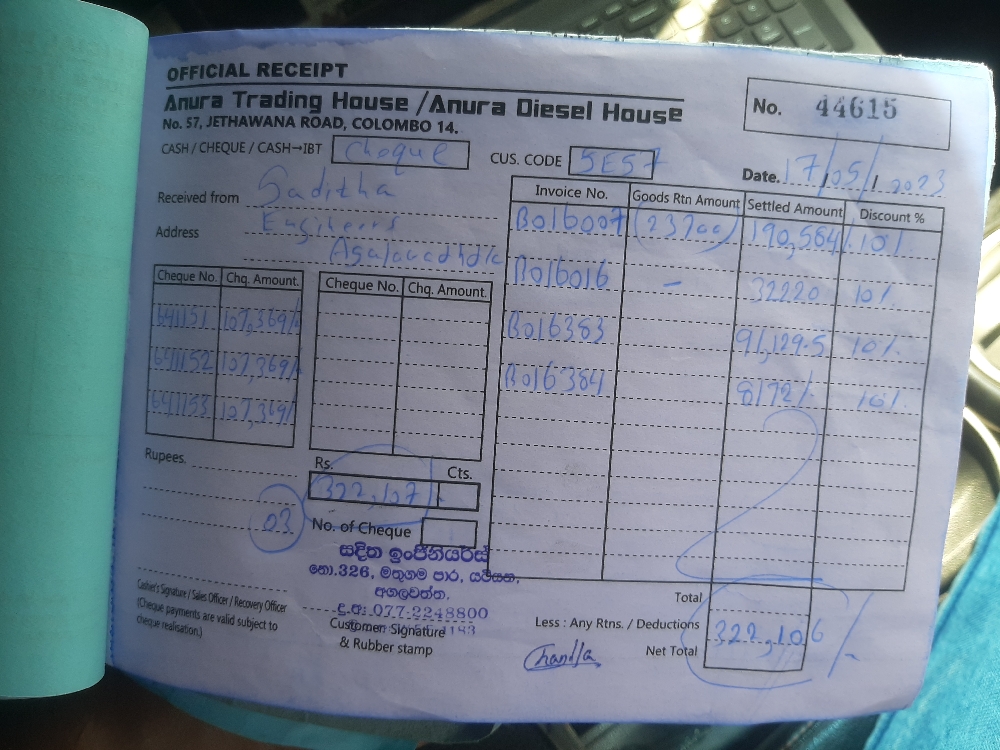 OFFICIAL RECEIPT
Anura Trading House / Anura Diesel House
No. 57, JETHAWANA ROAD, COLOMBO 14.
No. 44615
CASH / CHEQUE / CASH→IBT Cheque
CUS. CODE SE57
Date. 17/05/2023
Received from Saditha
Engineers
Address
Invoice No. Goods Rtn Amount Settled Amount Discount %
B016007 (23700) 190,584/. 10%
B016016 - 32220 10%
B016383 91,129.5 10%
B016384 8172/. 10%
Cheque No. Chq. Amount. Cheque No. Chq. Amount.
641151 107,369/.
641152 107,369/.
641153 107,369/.
Rupees.
Rs. Cts.
322,107/.
03
No. of Cheque
සදිත ඉංජිනියර්ස්
නො.326, මතුගම පාර,
අගලවත්ත.
දු.ක: 077-2248800
Cashier's Signature / Sales Officer / Recovery Officer
(Cheque payments are valid subject to
cheque realisation.)
Customer Signature
& Rubber stamp
Total
Less : Any Rtns. / Deductions
Net Total
322,106/.